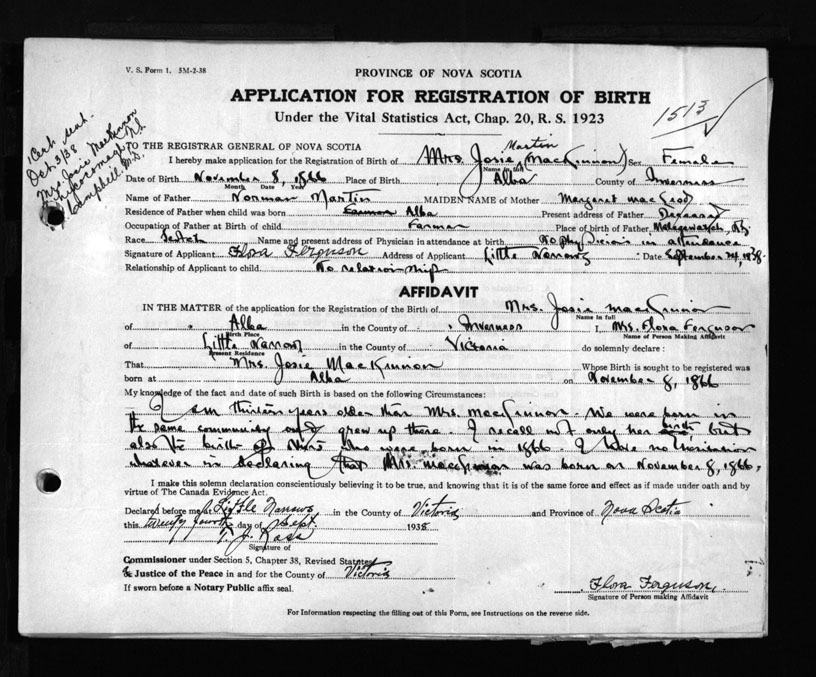 V. S. Form 1. 5M-2-38
PROVINCE OF NOVA SCOTIA
APPLICATION FOR REGISTRATION OF BIRTH
Under the Vital Statistics Act, Chap. 20, R. S. 1923
1513
Oct 3/38
Mrs. Josie MacKinnon
Campbell, M.S.
TO THE REGISTRAR GENERAL OF NOVA SCOTIA
Martin
I hereby make application for the Registration of Birth of Mrs. Josie (MacKinnon) Sex Female
Name in full
Date of Birth November 8, 1866 Place of Birth Alba County of Inverness
Month Date Year
Name of Father Norman Martin MAIDEN NAME of Mother Margaret MacLeod
Residence of Father when child was born Alba Present address of Father Deceased
Occupation of Father at Birth of child Farmer Place of Birth of Father Malagawatch, N.S.
Race Scotch Name and present address of Physician in attendance at birth No physician in attendance
Signature of Applicant Flora Ferguson Address of Applicant Little Narrows Date September 24, 1938
Relationship of Applicant to child No relationship
AFFIDAVIT
IN THE MATTER of the application for the Registration of the Birth of Mrs. Josie MacKinnon
Name in full
of Alba in the County of Inverness I, Mrs. Flora Ferguson
Birth Place Name of Person Making Affidavit
of Little Narrows in the County of Victoria do solemnly declare :
Present Residence
That Mrs. Josie MacKinnon Whose Birth is sought to be registered was
born at Alba on November 8, 1866
My knowledge of the fact and date of such Birth is based on the following Circumstances:
I am thirteen years older than Mrs. MacKinnon. We were born in
the same community and grew up there. I recall not only her birth, but
also the birth of others who were born in 1866. I have no hesitation
whatever in declaring that Mrs. MacKinnon was born on November 8, 1866.
I make this solemn declaration conscientiously believing it to be true, and knowing that it is of the same force and effect as if made under oath and by
virtue of The Canada Evidence Act.
Declared before me at Little Narrows in the County of Victoria and Province of Nova Scotia
this twenty fourth day of Sept. 1938
T. J. Ross
Signature of
Commissioner under Section 5, Chapter 38, Revised Statutes
& Justice of the Peace in and for the County of Victoria
If sworn before a Notary Public affix seal.
Flora Ferguson
Signature of Person making Affidavit
For Information respecting the filling out of this Form, see Instructions on the reverse side.